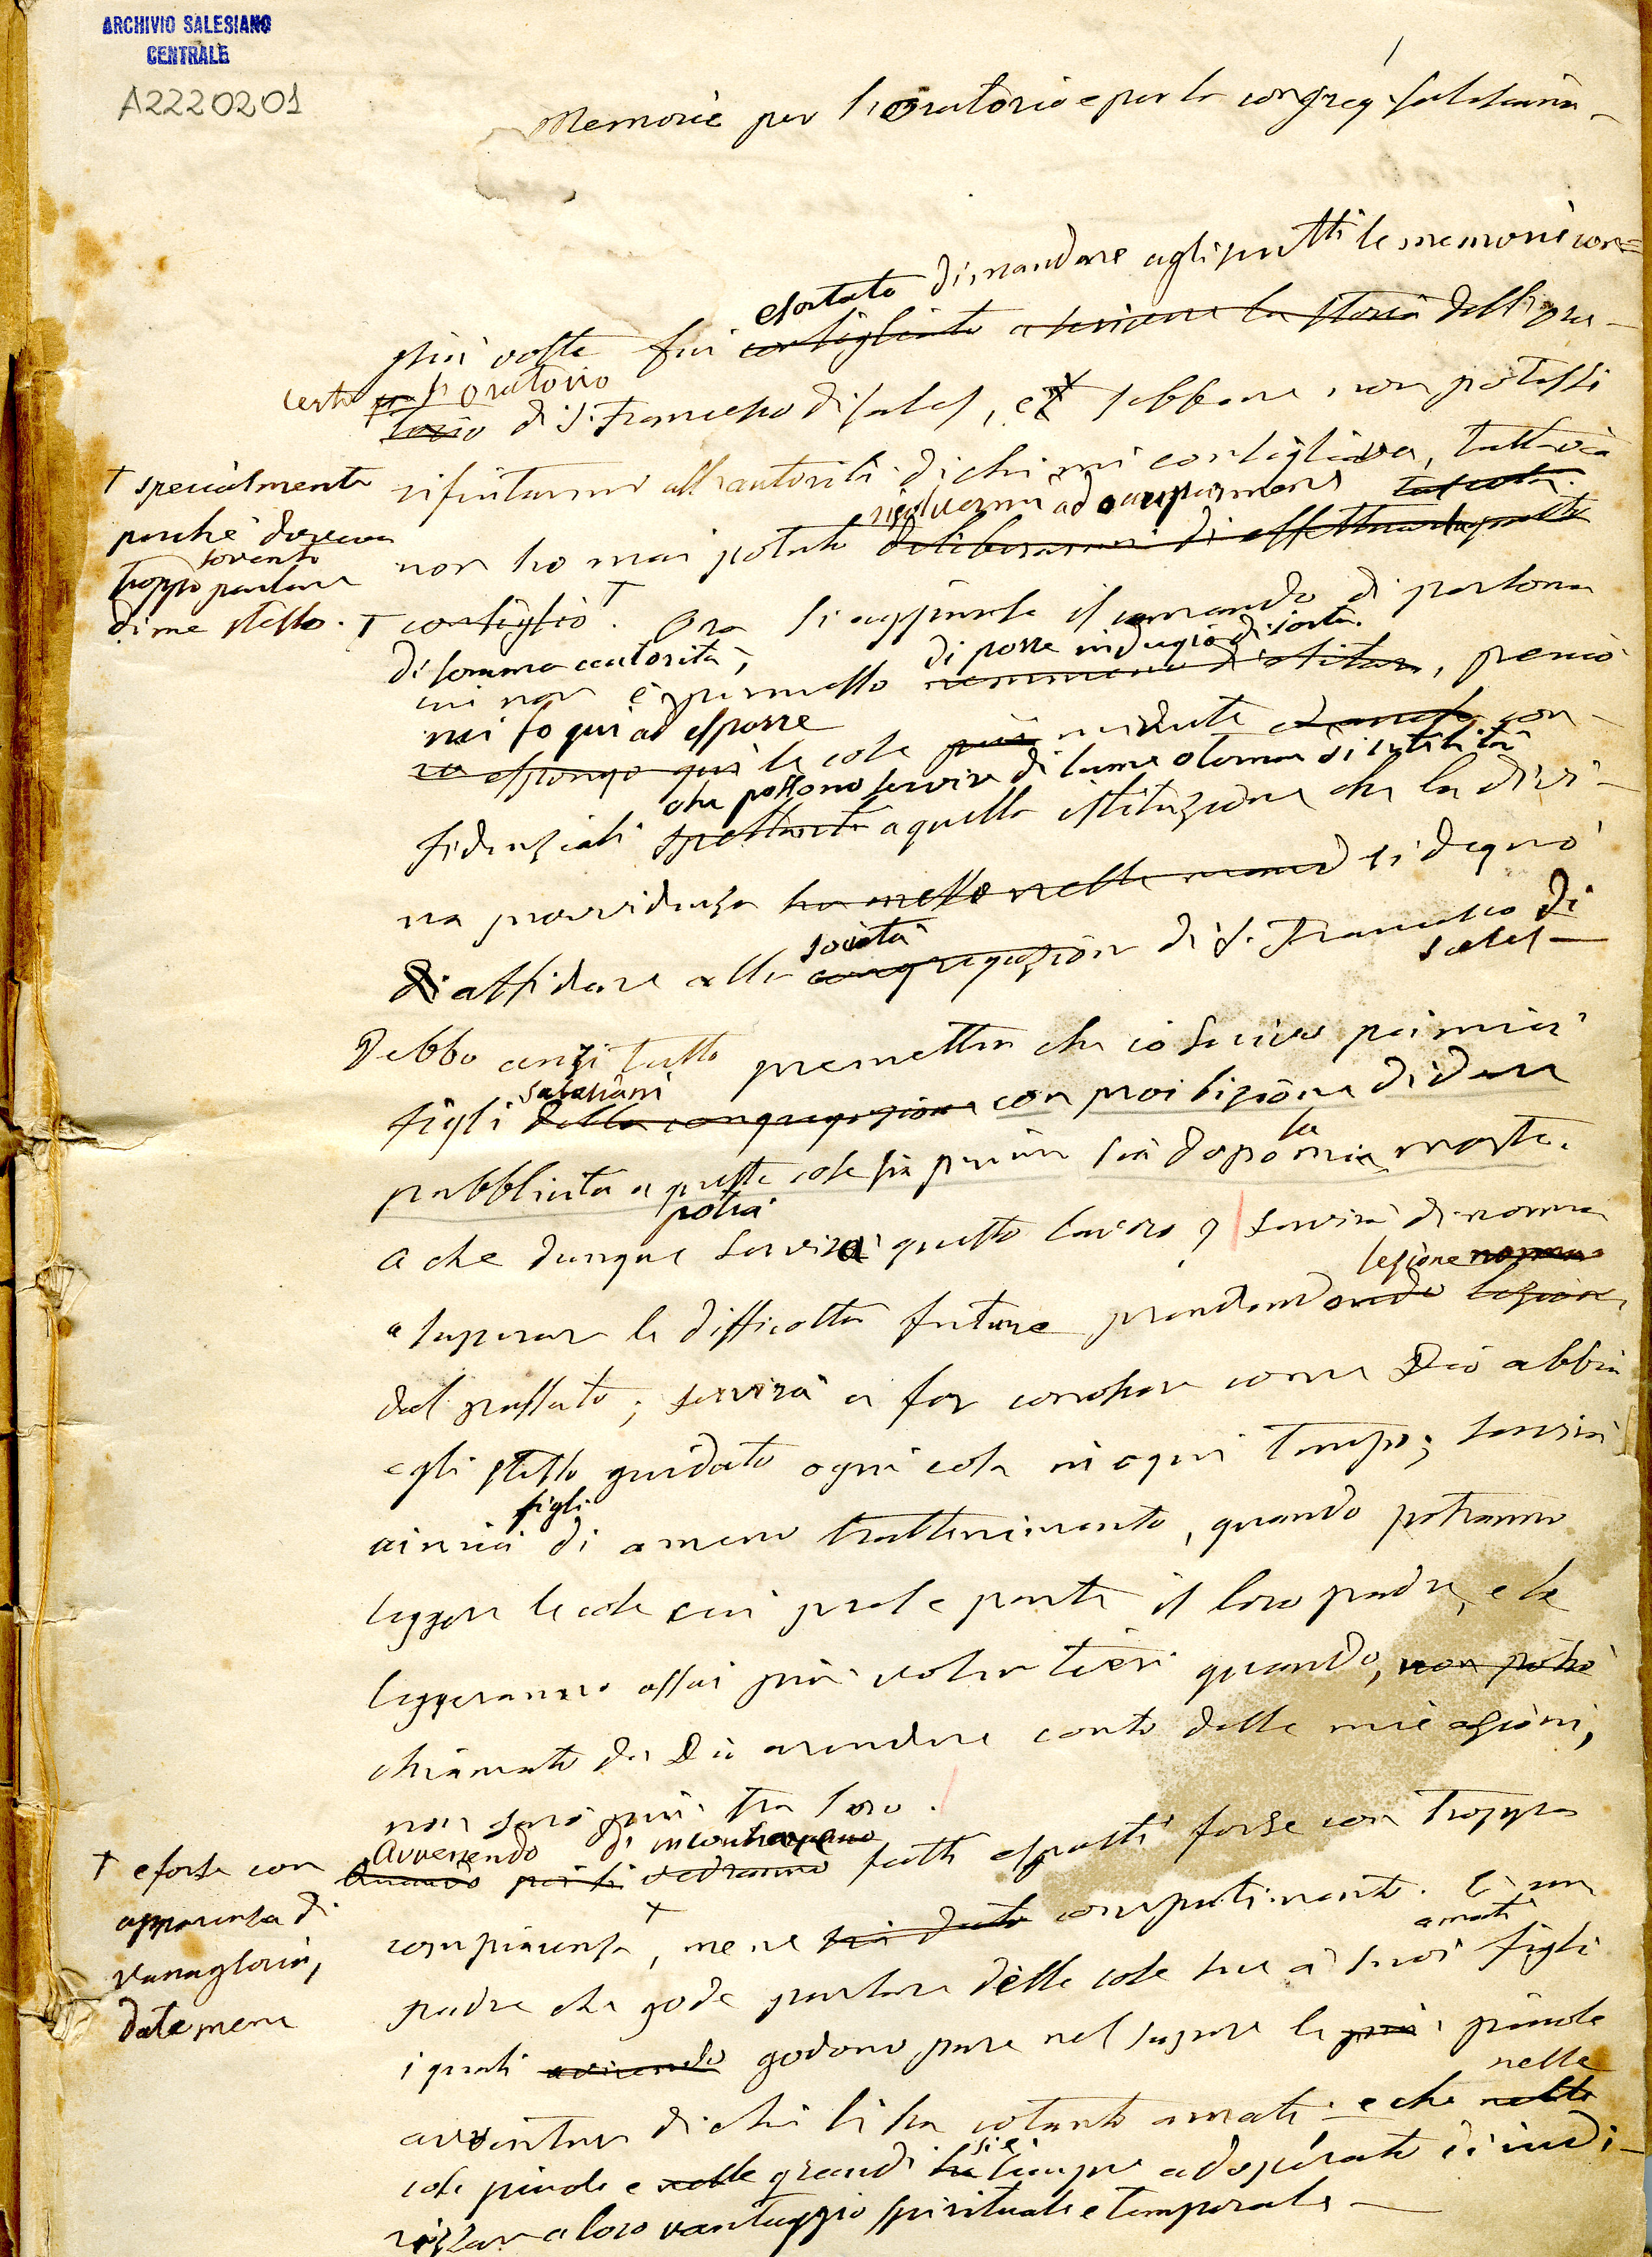 ARCHIVIO SALESIANO
CENTRALE
A2220201
1
Memorie per l'oratorio e per la congreg. salesiana
esortato di mandare agli scritti le memorie con=
più volte fui consigliato a scrivere la storia dell'ora-
certo per l'oratorio
torio di S. Francesco di Sales, e sebbene non potessi
rifiutarmi all'autorità di chi mi consigliava, tuttavia
risolvermi ad occuparmene
non ho mai potuto deliberarmi di effettuare questo
† specialmente
perchè doveva
sovente
troppo parlare
di me stesso. †
consiglio. † Ora si aggiunse il comando di persona
di somma autorità,
di porre indugio di sorta.
cui non è permesso nemmeno di esitare, perciò
mi fo qui ad esporre
io espongo qui le cose più minute ed anche con-
che possono servire di lume o tornar di utilità
fidenziali spettanti a quella istituzione che la divi-
na provvidenza ha messo nelle mani si degnò
di affidare alla congregazione di S. Francesco di
società
Sales —
Debbo anzi tutto premettere che io scrivo pei miei
salesiani
figli della congregazione con proibizione di dare
la
pubblicità a queste cose sia prima sia dopo mia morte.
potrà
A che dunque servirà questo lavoro? Servirà di norma
lezione norma
a superare le difficoltà future prendendo lezione
dal passato; servirà a far conoscere come Dio abbia
egli stesso guidato ogni cosa in ogni tempo; servirà
figli
ai miei di ameno trattenimento, quando potranno
leggere le cose cui prese parte il loro padre, e le
leggeranno assai più volentieri quando, non potrò
chiamato da Dio a rendere conto delle mie azioni,
non sarò più tra loro.
Avvenendo di incontrare
Quando poi si vedranno fatti esposti forse con troppa
† e forse con
apparenza di
vanagloria,
datemene
compiacenza, † me ne sia dato compatimento. È un
amati
padre che gode parlare delle cose sue a' suoi figli
i quali godono pure nel sapere le più piccole
avventure di chi li ha cotanto amati e che nelle
nelle
cose piccole e nelle grandi ha sempre adoperato di indi-
si è
rizzare a loro vantaggio spirituale e temporale —